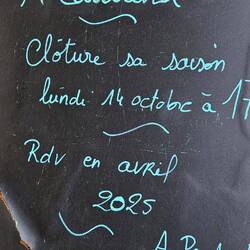 Clôture sa saison
lundi 14 octobre à 17
Rdv en avril
2025